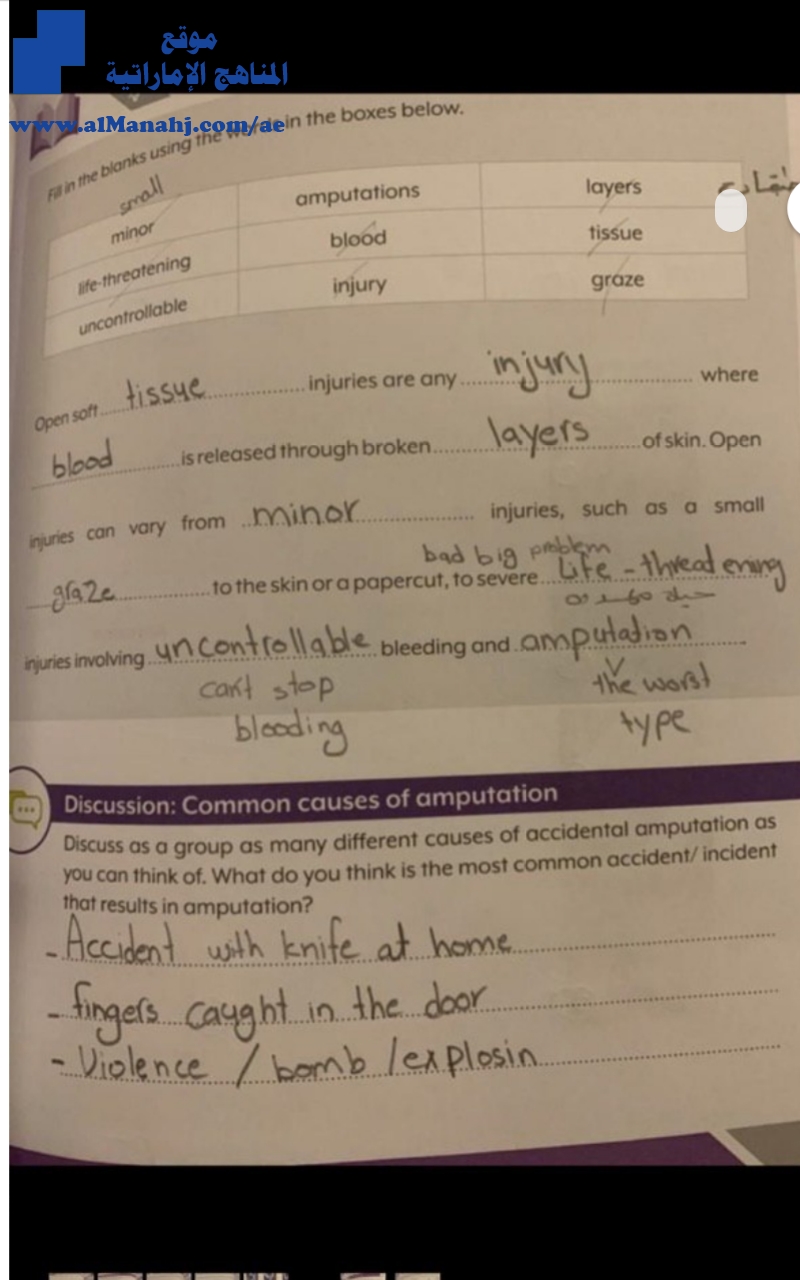 موقع
المناهج الإماراتية
www.alManahj.com/ae
Fill in the blanks using the words in the boxes below.
small
minor amputations layers
life-threatening blood tissue
uncontrollable injury graze
Open soft tissue injuries are any injury where
blood is released through broken layers of skin. Open
injuries can vary from minor injuries, such as a small
bad big problem
graze to the skin or a papercut, to severe Life - threatening
injuries involving uncontrollable bleeding and amputation
can't stop the worst
bleeding type
Discussion: Common causes of amputation
Discuss as a group as many different causes of accidental amputation as
you can think of. What do you think is the most common accident/ incident
that results in amputation?
- Accident with knife at home
- fingers caught in the door
- Violence / bomb / explosin